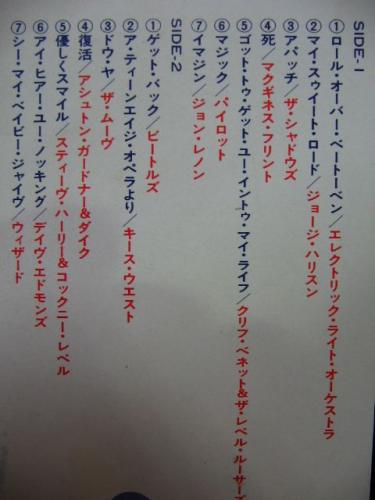 SIDE-1
①ロール・オーバー・ベートーベン/エレクトリック・ライト・オーケストラ
②マイ・スウィート・ロード/ジョージ・ハリスン
③アパッチ/ザ・シャドウズ
④死/マクギネス・フリント
⑤ゴット・トゥ・ゲット・ユー・イントゥ・マイ・ライフ/クリフ・ベネット&ザ・レベル・ルーサーズ
⑥マジック/パイロット
⑦イマジン/ジョン・レノン
SIDE-2
①ゲット・バック/ビートルズ
②ア・ティーンエイジ・オペラより/キース・ウエスト
③ドゥ・ヤ/ザ・ムーヴ
④復活/アシュトン・ガードナー&ダイク
⑤優しくスマイル/スティーヴ・ハーリー&コックニー・レベル
⑥アイ・ヒアー・ユー・ノッキング/デイヴ・エドモンズ
⑦シー・マイ・ベイビー・ジャイヴ/ウィザード